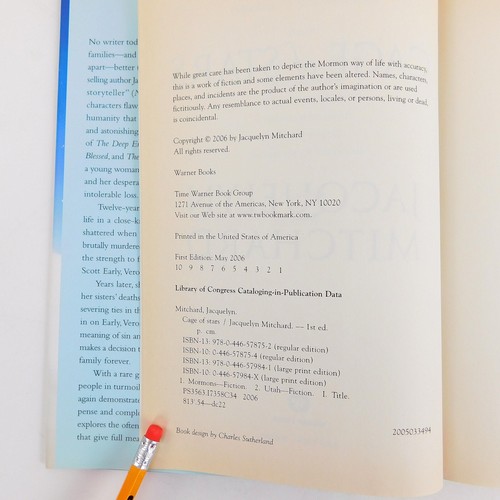 No writer tod
families—and
apart—better
selling author Ja
storyteller" (N
characters flaw
humanity that
and astonishing
of The Deep E
Blessed, and The
a young woman
and her despera
intolerable loss
Twelve-year
life in a close-k
shattered when
brutally murdered
the strength to f
Scott Early, Vero
Years later, s
her sisters' deaths
severing ties in th
in on Early, Vero
meaning of sin an
makes a decision
family forever.
With a rare g
people in turmoil
again demonstrate
pense and comple
explores the often
that give full mea
While great care has been taken to depict the Mormon way of life with accuracy,
this is a work of fiction and some elements have been altered. Names, characters,
places, and incidents are the product of the author's imagination or are used
fictitiously. Any resemblance to actual events, locales, or persons, living or dead,
is coincidental.
Copyright © 2006 by Jacquelyn Mitchard
All rights reserved.
Warner Books
Time Warner Book Group
1271 Avenue of the Americas, New York, NY 10020
Visit our Web site at www.twbookmark.com.
Printed in the United States of America
First Edition: May 2006
10 9 8 7 6 5 4 3 2 1
Library of Congress Cataloging-in-Publication Data
Mitchard, Jacquelyn.
Cage of stars / Jacquelyn Mitchard. — 1st ed.
p. cm.
ISBN-13: 978-0-446-57875-2 (regular edition)
ISBN-10: 0-446-57875-4 (regular edition)
ISBN-13: 978-0-446-57984-1 (large print edition)
ISBN-10: 0-446-57984-X (large print edition)
1. Mormons—Fiction. 2. Utah—Fiction. I. Title.
PS3563.I7358C34 2006
813'.54—dc22
2005033494
Book design by Charles Sutherland